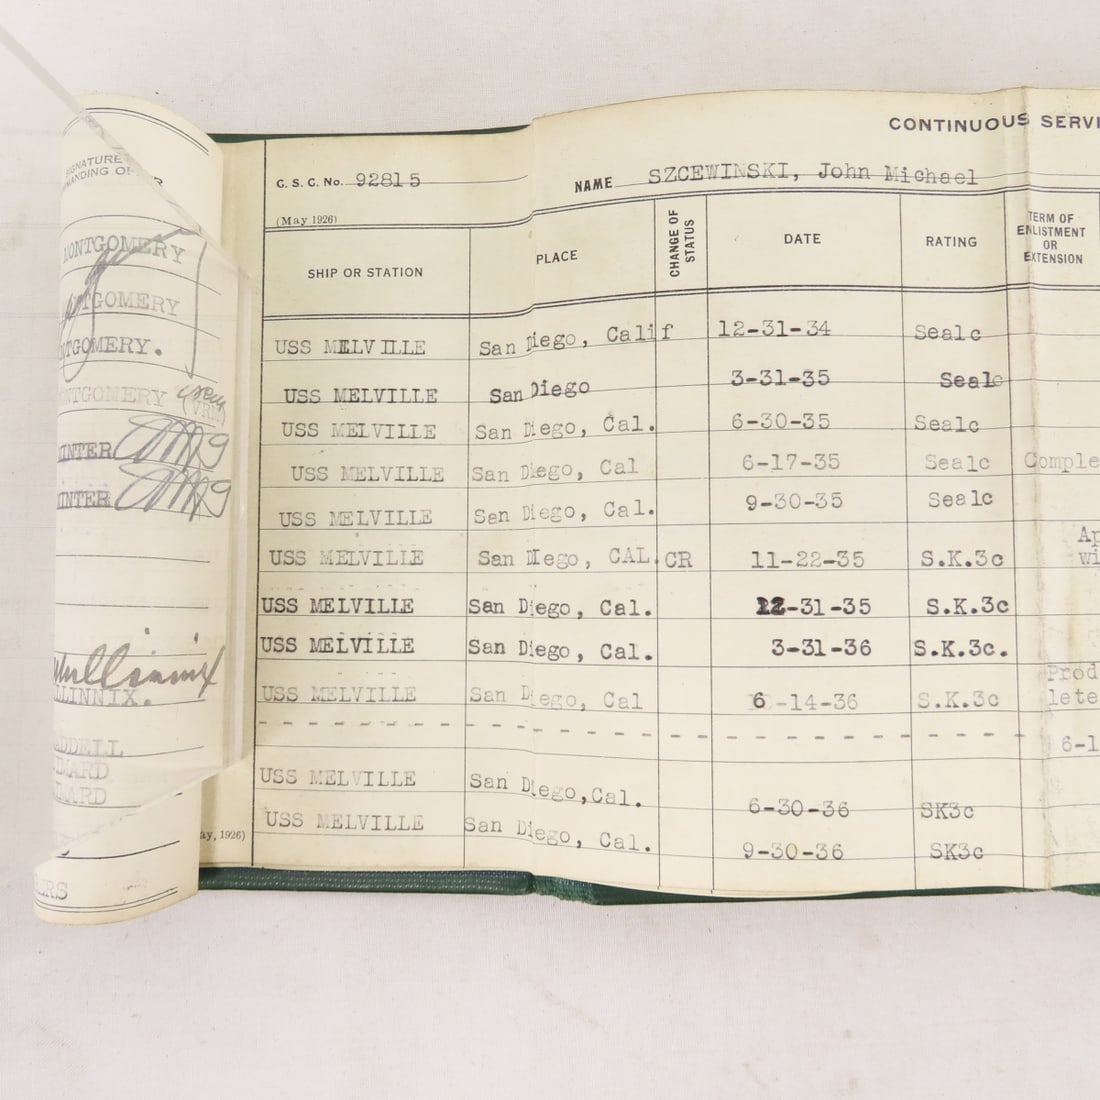 CONTINUOUS SERVI
C. S. C. No. 92815
NAME SZCEWINSKI, John Michael
(May 1926)
SHIP OR STATION PLACE CHANGE OF STATUS DATE RATING TERM OF ENLISTMENT OR EXTENSION
USS MELVILLE San Diego, Calif 12-31-34 Sea1c
USS MELVILLE San Diego 3-31-35 Sea1c
USS MELVILLE San Diego, Cal. 6-30-35 Sea1c
USS MELVILLE San Diego, Cal 6-17-35 Sea1c Comple
USS MELVILLE San Diego, Cal. 9-30-35 Sea1c
USS MELVILLE San Diego, CAL. CR 11-22-35 S.K.3c Ap
wi
USS MELVILLE San Diego, Cal. 12-31-35 S.K.3c
USS MELVILLE San Diego, Cal. 3-31-36 S.K.3c.
USS MELVILLE San Diego, Cal 6-14-36 S.K.3c Prod
lete
6-1
USS MELVILLE San Diego, Cal. 6-30-36 SK3c
USS MELVILLE San Diego, Cal. 9-30-36 SK3c
ay, 1926)
SIGNATURE
MANDING OF R
MONTGOMERY
TGOMERY
NTGOMERY.
NTGOMERY
INTER
INTER
Mullinnix
LLINNIX.
ADDELL
ERS